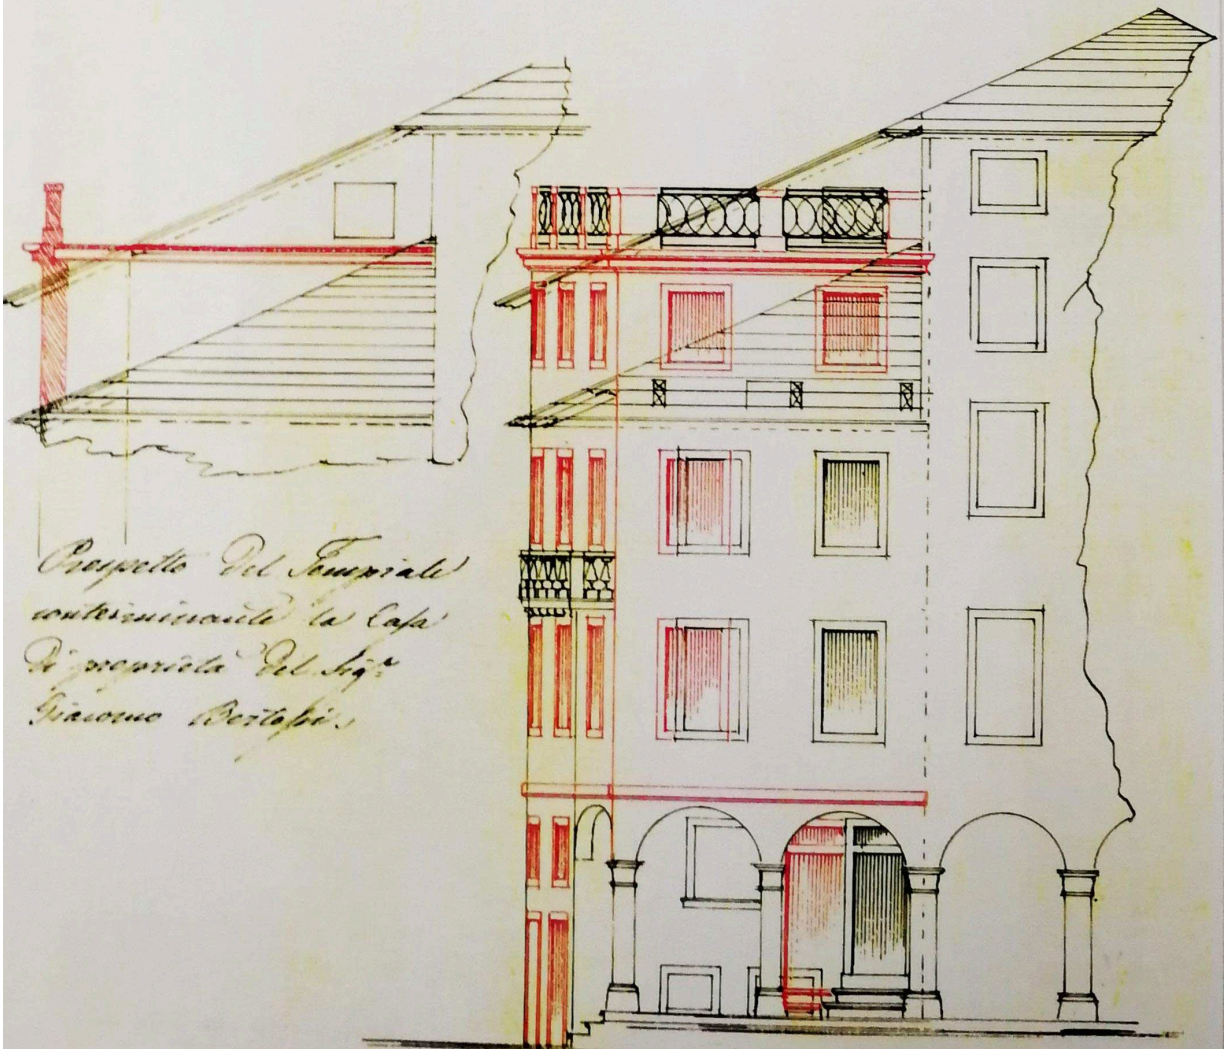 Prospetto del Tempiale
conterminante la Casa
di proprietà del Sig.r
Giacomo